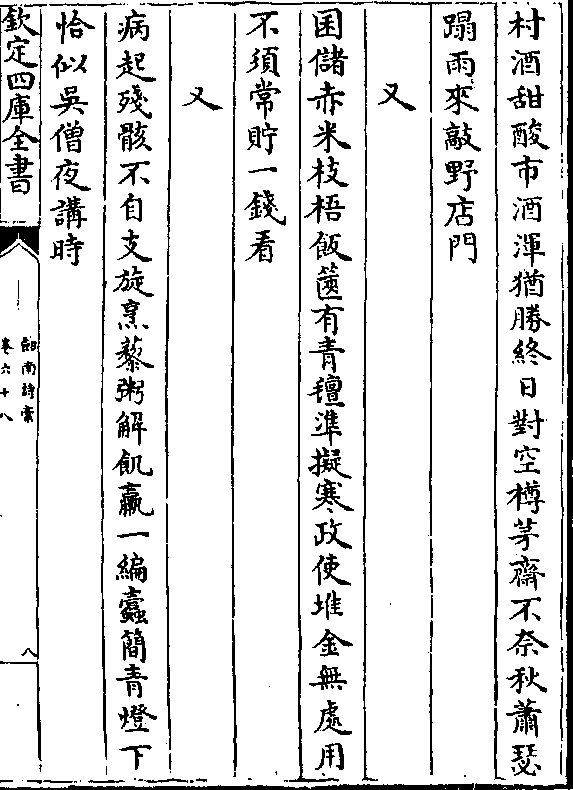 村酒甜酸市酒渾猶勝終日對空樽茅齋不奈秋蕭瑟
蹋雨來敲野店門
又
囷儲赤米枝梧飯篋有青氊準擬寒政使堆金無處用
不須常貯一錢看
又
病起殘骸不自支旋烹藜粥解飢羸一編蠧簡青燈下
恰似吳僧夜講時
欽定四庫全書
劍南詩稾
卷六十八
八